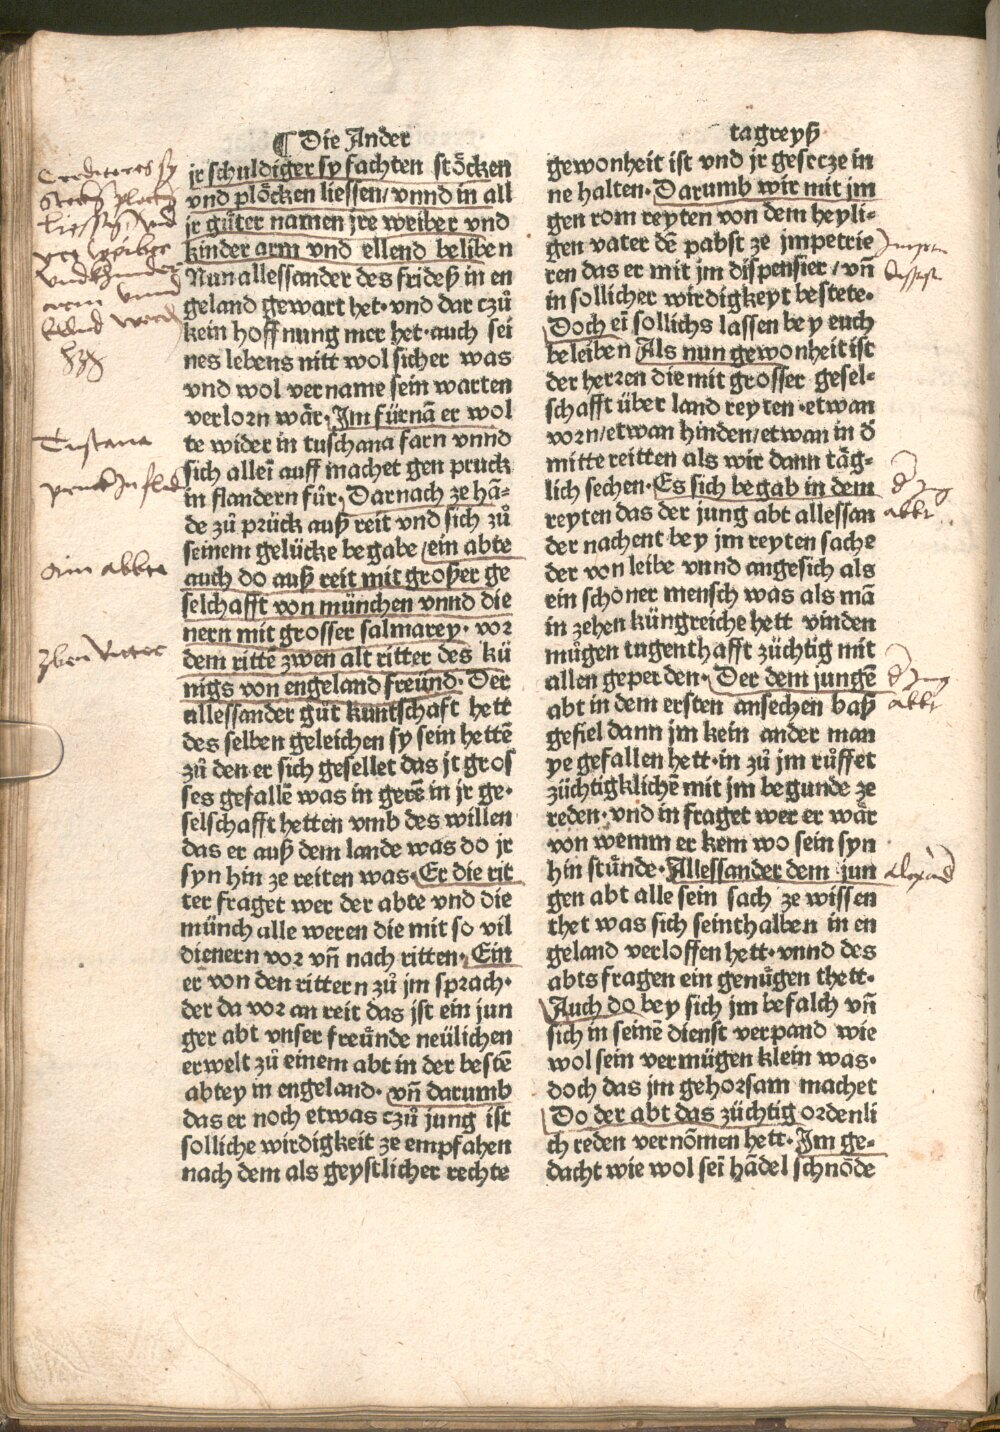 ¶ Die Ander
jr schuldiger sy fachten stöcken
vnd plöcken liessen/ vnnd in all
jr gůter namen jre weiber vnd
kinder arm vnd ellend beliben
Nun allessander des frideß in en
geland gewart het· vnd dar czů
kein hoffnung mer het· auch sei
nes lebens nitt wol sicher was
vnd wol vername sein warten
verlorn wår· Jm fürnā er wol
te wider in tuschana farn vnnd
sich alleī auff machet gen pruck
in flandern für· Darnach ze hā⸗
de zů prück auß reit vnd sich zů
seinem gelücke begabe/ ein abte
auch do auß reit mit großer ge
selchafft von münchen vnnd die
nern mit grosser salmarey· vor
dem rittē zwen alt ritter des kü
nigs von engeland freünd· Der
allessander gůt kuntschaft hett
des selben geleichen sy sein hettē
zů den er sich gesellet das jt gros
ses gefallē was in gerē in jr ge⸗
selschafft hetten vmb des willen
das er auß dem lande was do jr
syn hin ze reiten was· Er die rit
ter fraget wer der abte vnd die
münch alle weren die mit so vil
dienern vor vn̄ nach ritten· Ein
er von den rittern zů jm sprach·
der da vor an reit das jst ein jun
ger abt vnser freünde neülichen
erwelt zů einem abt in der bestē
abtey in engeland· vn̄ darumb
das er noch etwas czů jung ist
solliche wirdigkeit ze empfahen
nach dem als geystlicher rechte
tagreyß
gewonheit ist vnd jr gesecze in
ne halten· Darumb wir mit jm
gen rom reyten von dem heyli⸗
gen vater dē pabst ze jmpetrie
ren das er mit jm dispensier/ vn̄
in sollicher wirdigkeyt bestete·
Doch eī sollichs lassen bey euch
beleiben Als nun gewonheit ist
der herren die mit grosser gesel⸗
schafft über land reyten· etwan
vorn/ etwan hinden/ etwan in d̄
mitte reitten als wir dann tåg⸗
lich sechen· Es sich begab in dem
reyten das der jung abt allessan
der nachent bey jm reyten sache
der von leibe vnnd angesich als
ein schöner mensch was als mā
in zehen küngreiche hett vinden
můgen tugenthafft züchtig mit
allen geperden· Der dem jungē
abt in dem ersten ansechen baß
gefiel dann jm kein ander man
ye gefallen hett· in zů jm růffet
züchtigklichē mit jm begunde ze
reden· vnd in fraget wer er wår
von wemm er kem wo sein syn
hin stünde· Allessander dem jun
gen abt alle sein sach ze wissen
thet was sich seinthalben in en
geland verloffen hett· vnnd des
abts fragen ein genügen thett·
Auch do bey sich jm befalch vn̄
sich in seinē dienst verpand wie
wol sein vermügen klein was·
doch das jm gehorsam machet
Do der abt das züchtig ordenli
ch reden vernōmen hett· Jm ge⸗
dacht wie wol seī hādel schnöde
Tustana
ain abbte
zben Ritter
d Jung
abbt
d Jung
abbt